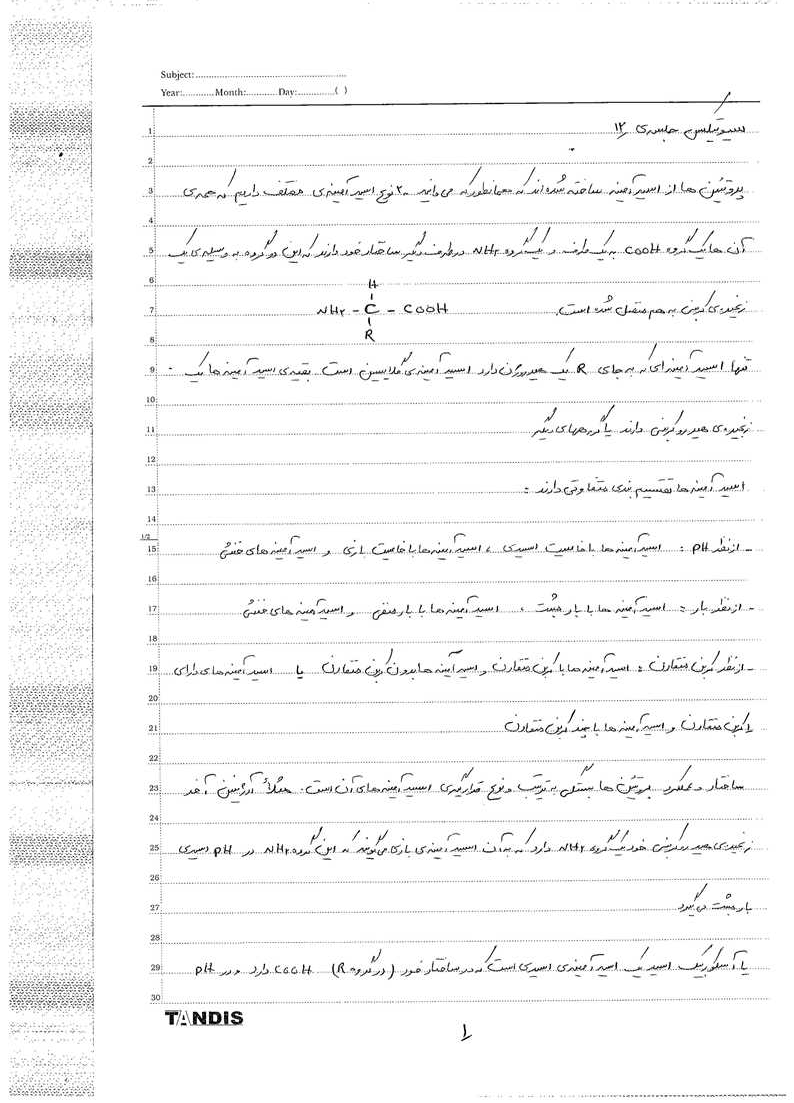 Subject:
Year: Month: Day: ( )
سیوتیکس جلسه‌ی ۱۲
پروتئین ها از اسید آمینه ساخته شده اند که همانطور که می دانید ۲۰ نوع اسید آمینه‌ی مختلف داریم که همه‌ی
آن ها یک گروه COOH به یک طرف و یک گروه NH۲ در طرف دیگر ساختار خود دارند که این دو گروه به وسیله‌ی یک
زنجیره‌ی کربنی به هم متصل شده است.
H
NH۲ - C - COOH
R
تنها اسید آمینه ای که به جای R یک هیدروژن دارد اسید آمینه‌ی گلایسین است بقیه‌ی اسید آمینه ها یک
زنجیره‌ی هیدروکربنی دارند یا گروههای دیگر
اسید آمینه ها تقسیم بندی متفاوتی دارند :
- از نظر PH : اسید آمینه ها با خاصیت اسیدی ، اسید آمینه ها با خاصیت بازی و اسید آمینه های خنثی
- از نظر بار : اسید آمینه ها با بار مثبت ، اسید آمینه ها با بار منفی و اسید آمینه های خنثی
- از نظر کربن متقارن : اسید آمینه ها با کربن متقارن و اسید آمینه ها بدون کربن متقارن یا اسید آمینه های دارای
۱ کربن متقارن و اسید آمینه ها با چند کربن متقارن
ساختار و عملکرد پروتئین ها بستگی به ترتیب و نوع قرارگیری اسید آمینه های آن است. مثلاً آرژنین آخر
زنجیره‌ی هیدروکربنی خود یک گروه NH۲ دارد که به آن اسید آمینه‌ی بازی می گویند که این گروه NH۲ در PH اسیدی
بار مثبت می گیرد
یا آسکوربیک اسید یک اسید آمینه‌ی اسیدی است که در ساختار خود (در گروه R) COOH دارد و در PH
TANDIS
۱